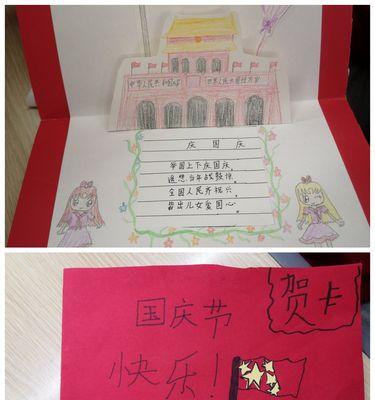 中华人民共和国万岁 世界人民大团结万岁
庆国庆
举国上下庆国庆,
遥想当年战敌惊。
全国人民齐祝兴,
出儿女爱国心。
国庆节
贺卡
快乐!